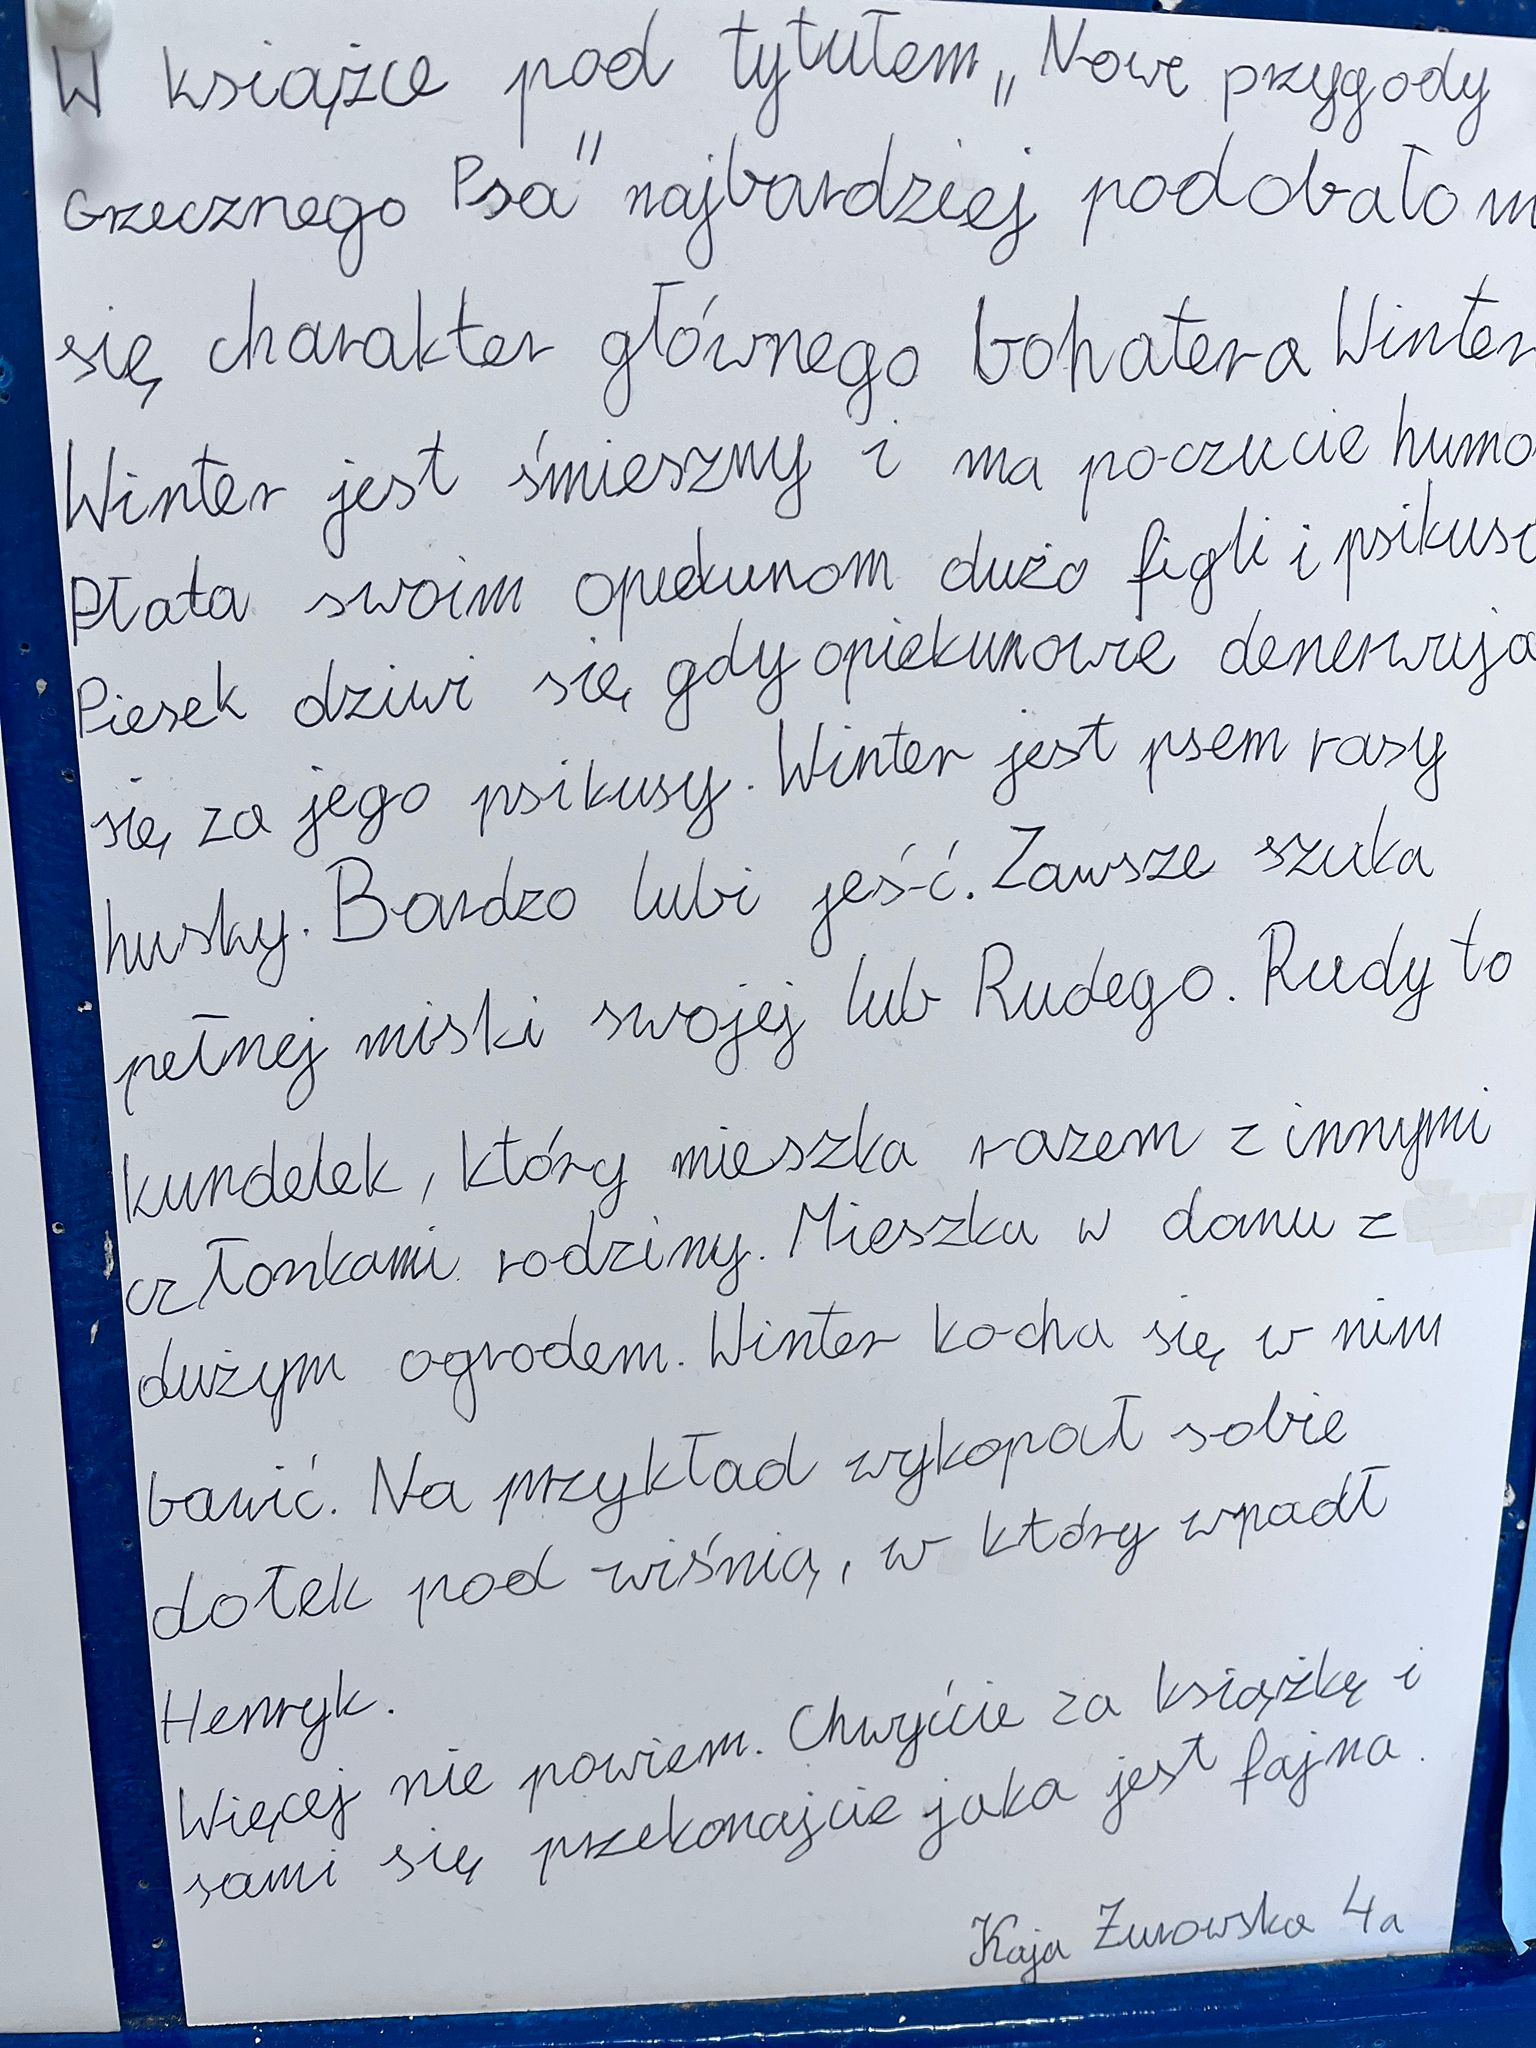 W książce pod tytułem „Nowe przygody
Grzecznego Psa" najbardziej podobało
się charakter głównego bohatera Winter
Winter jest śmieszny i ma poczucie humo
Płata swoim opiekunom dużo figli i psikusó
Piesek dziwi się, gdy opiekunowie denerwują
się za jego psikusy. Winter jest psem rasy
husky. Bardzo lubi jeść. Zawsze szuka
pełnej miski swojej lub Rudego. Rudy to
kundelek, który mieszka razem z innymi
członkami rodziny. Mieszka w domu z
dużym ogrodem. Winter kocha się w nim
bawić. Na przykład wykopał sobie
dołek pod wiśnią, w który wpadł
Henryk.
Więcej nie powiem. Chwyćcie za książkę i
sami się przekonajcie jaka jest fajna.
Kaja Żurowska 4a